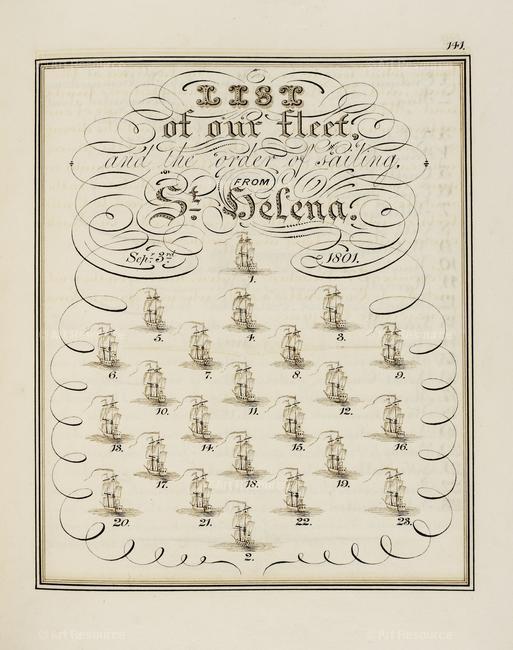 141.
LIST
of our fleet,
and the order of sailing,
FROM
St. Helena.
Sept. 3rd. 1801.
1.
5. 4. 3.
6. 7. 8. 9.
10. 11. 12.
13. 14. 15. 16.
17. 18. 19.
20. 21. 22. 23.
2.
© Art Resource © Art Resource